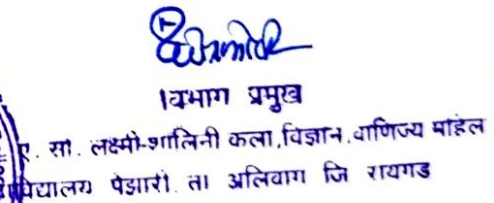 विभाग प्रमुख
ए. सो. लक्ष्मी-शालिनी कला,विज्ञान,वाणिज्य महिल
विद्यालय पेझारी. ता अलिबाग जि रायगड